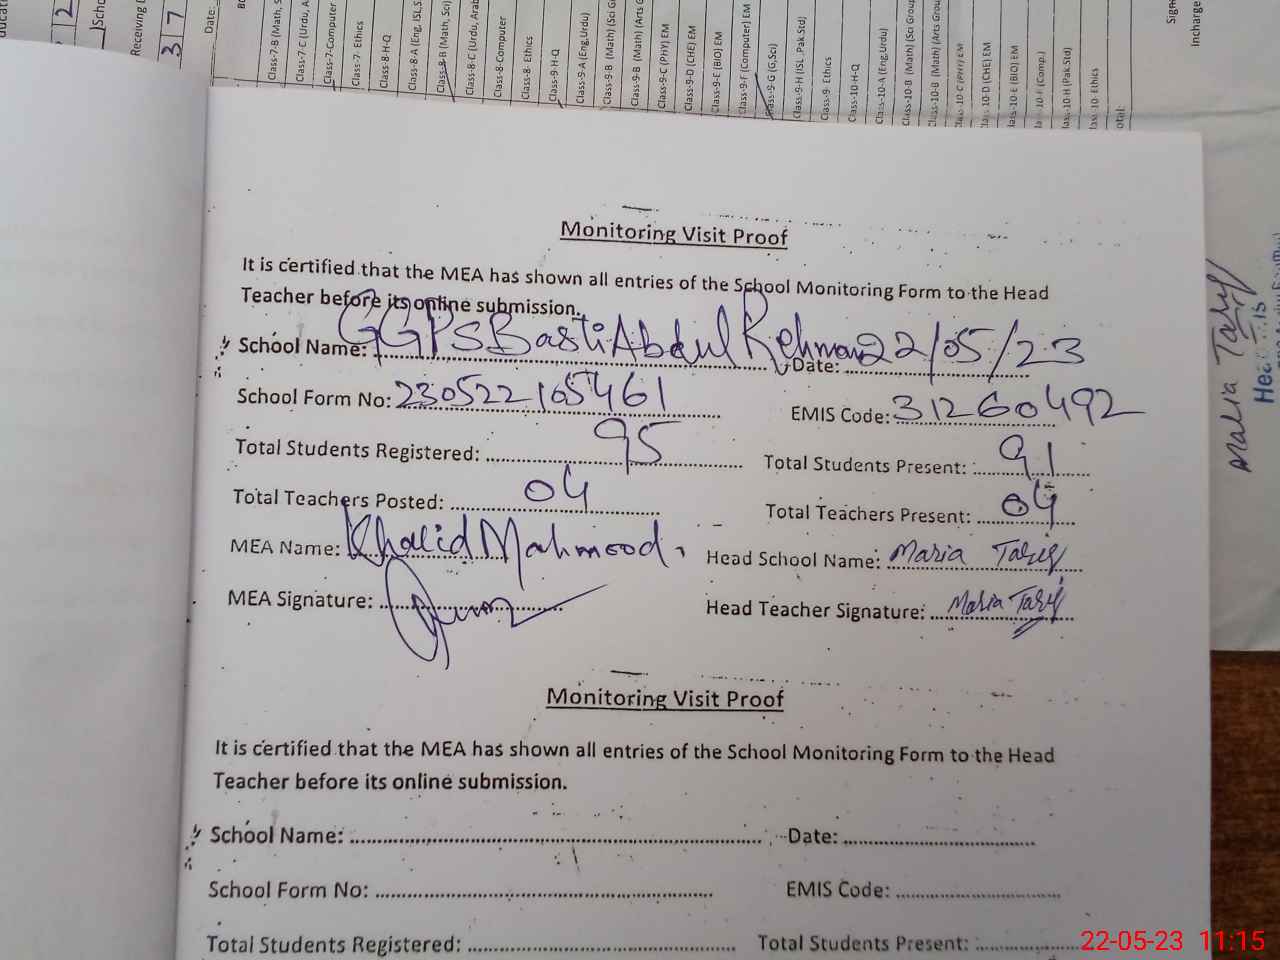 Class-7-B (Math, S
Class-7-C (Urdu, A
Class-7-Computer
Class-7- Ethics
Class-8-H-Q
Class-8-A (Eng, ISL,S
Class-8-B (Math, Sci)
Class-8-C (Urdu, Arab
Class-8-Computer
Class-8- Ethics
Class-9-H-Q
Class-9-A (Eng,Urdu)
Class-9-B (Math) (Sci G
Class-9-B (Math) (Arts G
Class-9-C (PHY) EM
Class-9-D (CHE) EM
Class-9-E (BIO) EM
Class-9-F (Computer) EM
Class-9-G (G,Sci)
Class-9-H (ISL ,Pak.Std)
Class-9- Ethics
Class-10-H-Q
Class-10-A (Eng,Urdu)
Class-10-B (Math) (Sci Grou
Class-10-B (Math) (Arts Grou
lass-10-C (PHY) EM
lass-10-D (CHE) EM
lass-10-E (BIO) EM
lass-10-F (Comp.)
lass-10-H (Pak.Std)
lass-10- Ethics
otal:
Date:
Receiving
3 7
2
Incharge
Monitoring Visit Proof
It is certified that the MEA has shown all entries of the School Monitoring Form to the Head
Teacher before its online submission.
School Name: GGPS Basti Abdul Rehman Date: 22/05/23
School Form No: 230522105461 EMIS Code: 31260492
Total Students Registered: 95 Total Students Present: 91
Total Teachers Posted: 04 Total Teachers Present: 04
MEA Name: Khalid Mahmood Head School Name: Maria Tariq
MEA Signature: Head Teacher Signature: Maria Tariq
Maria Tariq
Monitoring Visit Proof
It is certified that the MEA has shown all entries of the School Monitoring Form to the Head
Teacher before its online submission.
School Name: Date:
School Form No: EMIS Code:
Total Students Registered: Total Students Present:
22-05-23 11:15